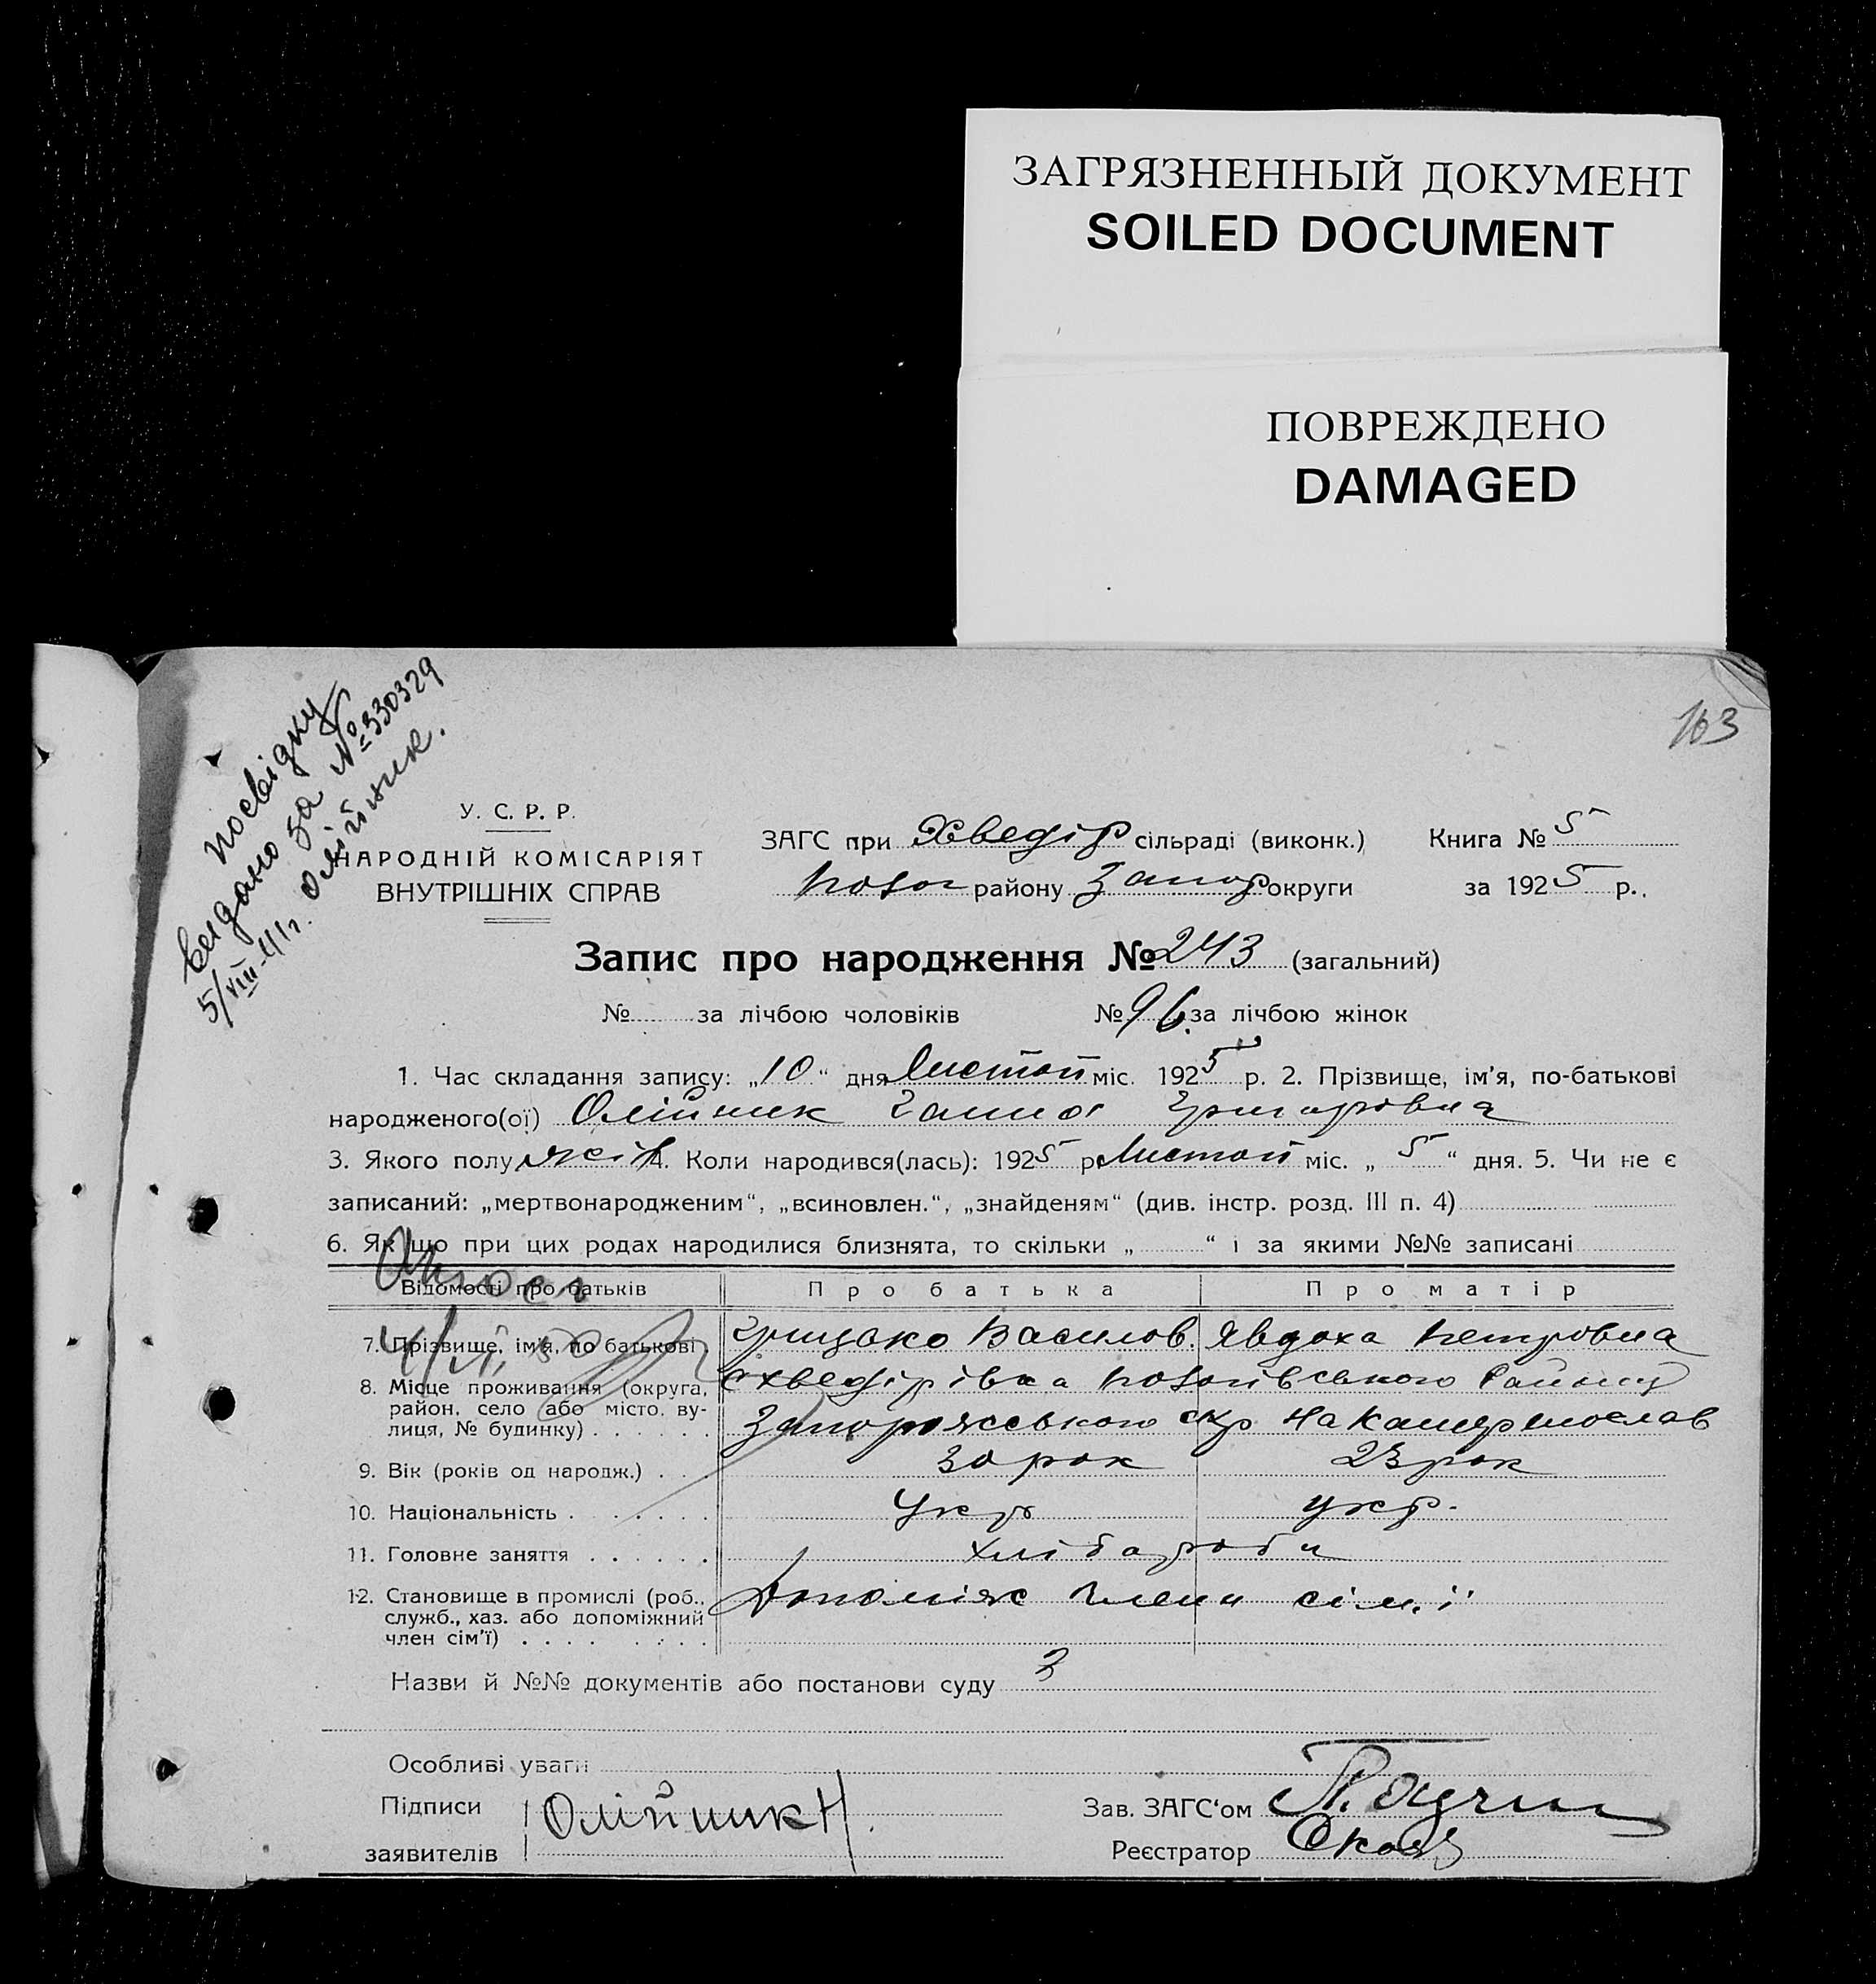 ЗАГРЯЗНЕННЫЙ ДОКУМЕНТ
SOILED DOCUMENT
ПОВРЕЖДЕНО
DAMAGED
163
посвідку
видано за №330329
5/VIII-41г. Олійник.
У. С. Р. Р.
НАРОДНІЙ КОМІСАРІЯТ
ВНУТРІШНІХ СПРАВ
ЗАГС при Хведір сільраді (виконк.) Книга № 5
району Запор округи за 1925 р.
Запис про народження №243 (загальний)
№ за лічбою чоловіків №96 за лічбою жінок
1. Час складання запису: „10“ дня Листоп міс. 1925 р. 2. Прізвище, ім'я, по-батькові
народженого(ої) Олійник Ганна Григоровна
3. Якого полу жін 4. Коли народився(лась): 1925 р Листоп міс. „5“ дня. 5. Чи не є
записаний: „мертвонародженим“, „всиновлен.“, „знайденям“ (див. інстр. розд. III п. 4)
6. Якщо при цих родах народилися близнята, то скільки „ “ і за якими №№ записані
Відомості про батьків Про батька Про матір
7. Прізвище, ім'я, по батькові Грицько Василов. Явдоха Петровна
8. Місце проживання (округа, район, село або місто, вулиця, № будинку) с Хведірівка району
Запорожського окр
9. Вік (років од народж.) 30 рок 23 рок
10. Національність Укр укр.
11. Головне заняття хлібороби
12. Становище в промислі (роб., служб., хаз. або допоміжний член сім'ї) Допоміж члени сім.ї
Назви й №№ документів або постанови суду 3
Особливі уваги
Підписи
заявителів
Олійник Н.
Зав. ЗАГС'ом
Реєстратор